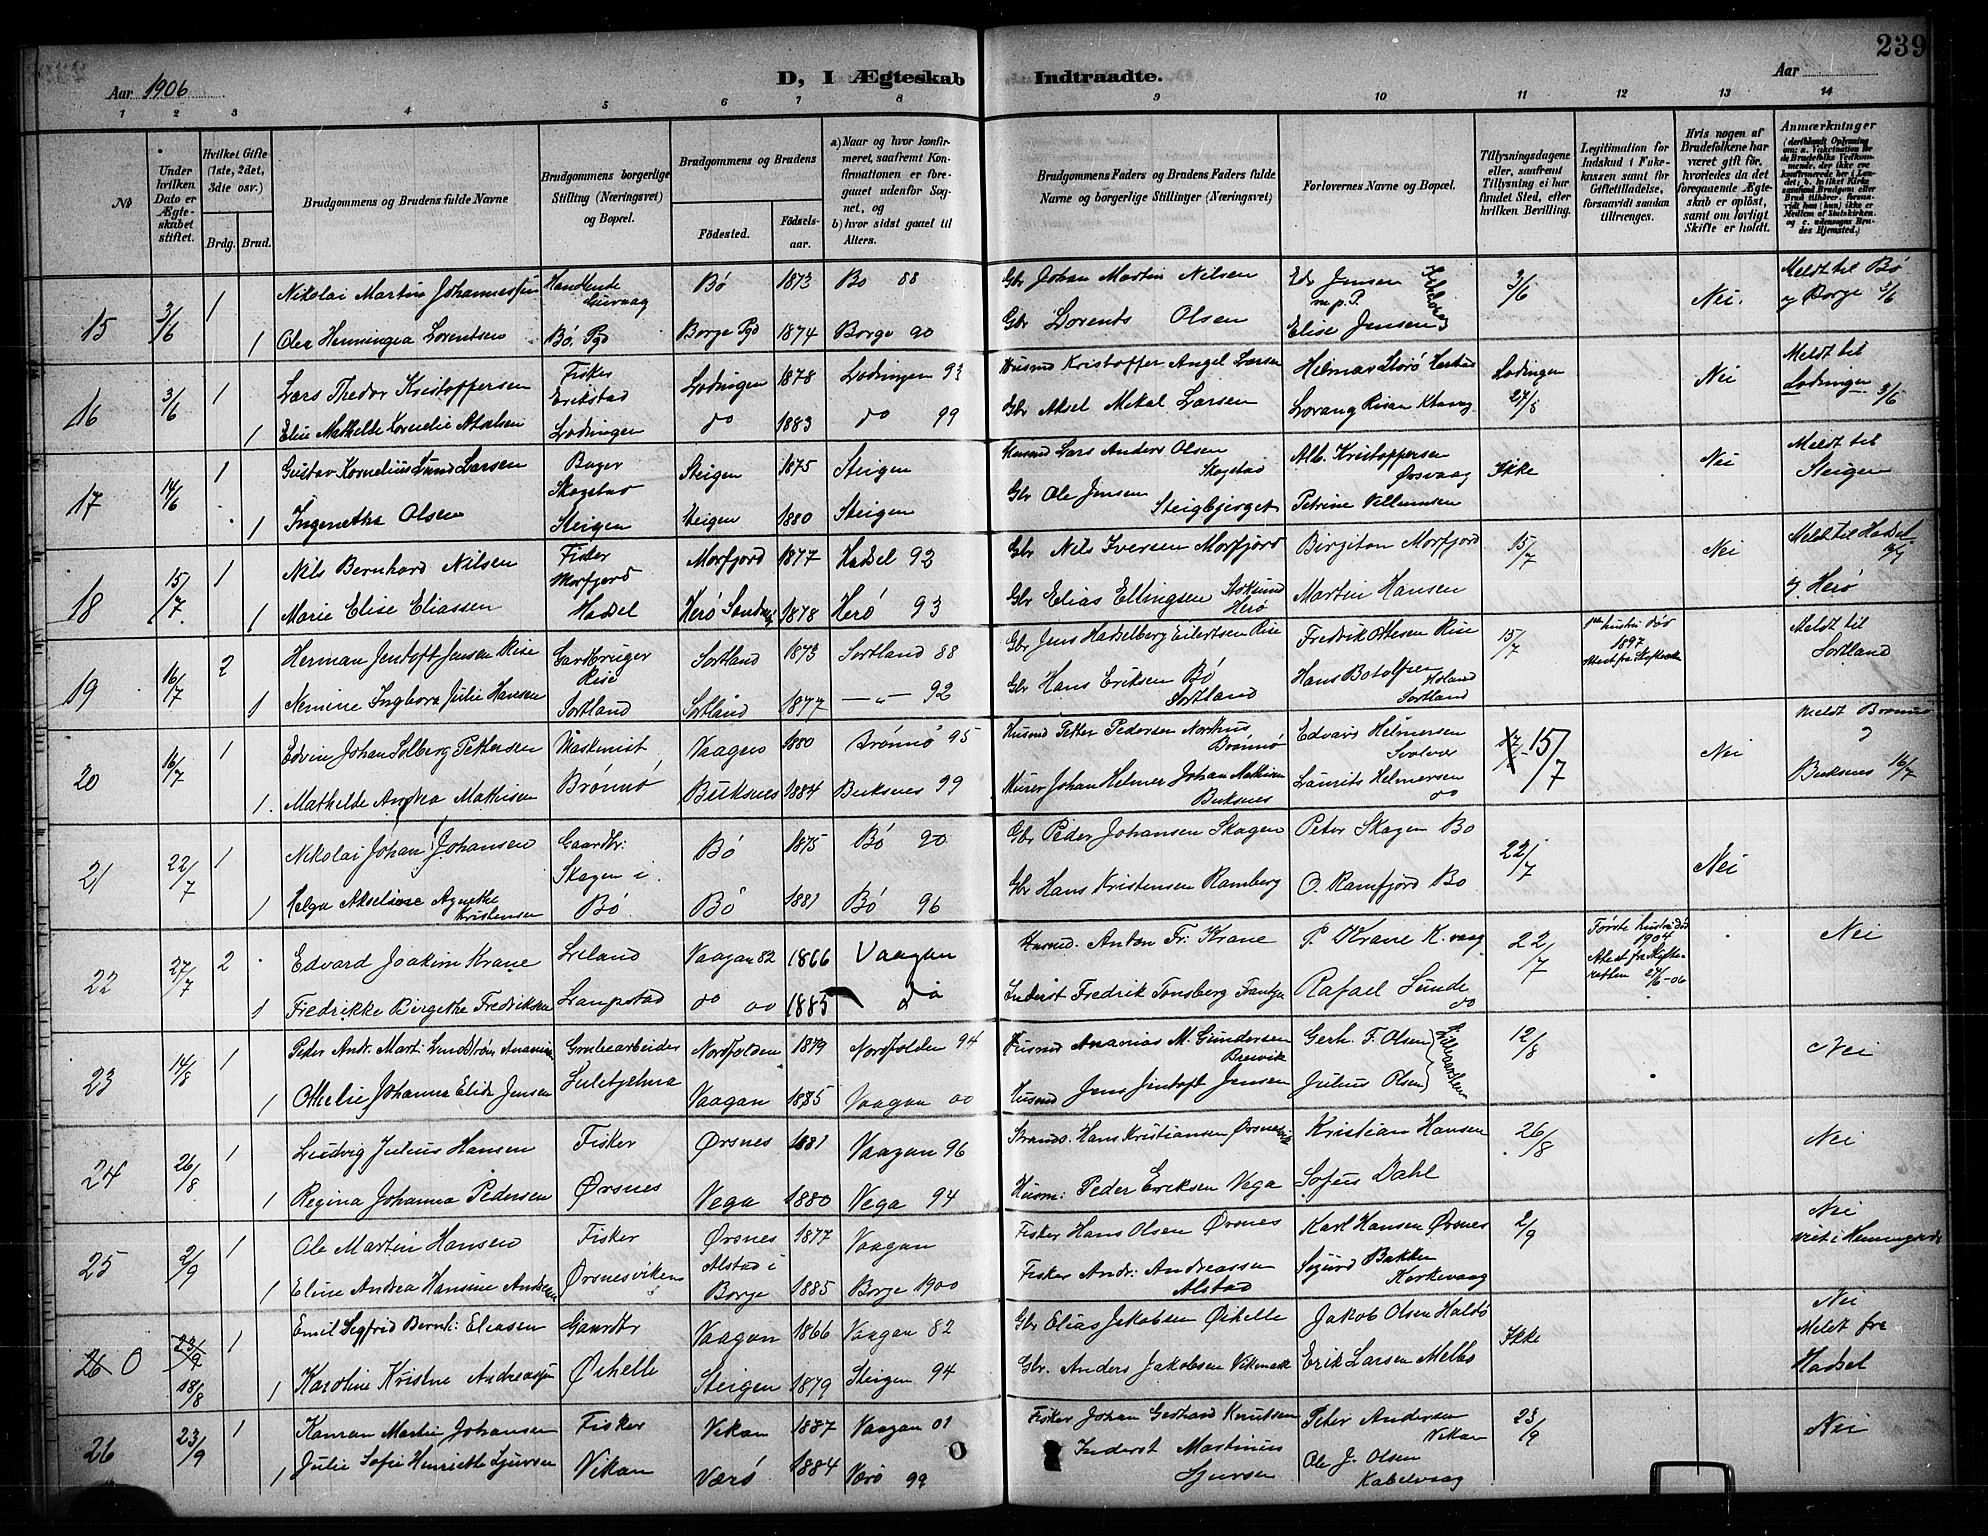 239
Aar 1906
D, I Ægteskab Indtraadte.
Aar
1 2 3 4 5 6 7 8 9 10 11 12 13 14
No
Under hvilken Dato er Ægteskabet stiftet.
Hvilket Gifte (1ste, 2det, 3die osv.)
Brdg. Brud.
Brudgommens og Brudens fulde Navne
Brudgommens borgerlige Stilling (Næringsvei) og Bopæl.
Brudgommens og Brudens
Fødested. Fødselsaar.
a) Naar og hvor konfirmeret, saafremt Konfirmationen er foregaaet udenfor Sognet, og
b) hvor sidst gaaet til Alters.
Brudgommens Faders og Brudens Faders fulde Navne og borgerlige Stillinger (Næringsvei)
Forlovernes Navne og Bopæl.
Tillysningsdagene eller, saafremt Tillysning ei har fundet Sted, efter hvilken Bevilling.
Legitimation for Indskud i Fukekassen samt for Giftetilladelse, forsaavidt saadan tiltrenges.
Hvis nogen af Brudefolkene har været gift før, hvorledes da det foregaaende Ægteskab er opløst, samt om lovligt Skifte er holdt.
Anmærkninger
(deriblandt Oplysning om: a. Vakcination for de Brudefolks Vedkommende, der ikke ere konfirmerede her i Landet; b. hvilket Kirkesamfund Brudgom eller Brud tilhører, forsaavidt han (hun) ikke er Medlem af Statskirken, og c. udensogns Brudes Hjemsted.)
15 3/6 1 Nikolai Martin Johannessen Handlende Bø 1873 Bø 88 Gbr Johan Martin Nilsen Edv Jensen 3/6 Nei. Meldt til Bø
1 Olea Henningea Lorentsen Bø. Pgd Borge Pgd 1874 Borge 90 Gbr Lorents Olsen Elise Jensen og Borge 3/6
16 3/6 1 Lars Thedor Kristoffersen Fisker Erikstad Lødingen 1878 Lødingen 93 Husmd Kristoffer Angel Larsen Hilmar Storø Lødingen Nei Meldt til
1 Elise Mathilde Kornelie Akselsen Lødingen do 1883 do 99 Gbr Aksel Mikal Larsen 27/8 Lødingen 3/6
17 14/6 1 Gustav Kornelius Lund Larsen Bager Skogstad Steigen 1875 Steigen Husmd Lars Anders Olsen Skogstad Alb. Kristoffersen Ørsvaag Ikke Nei Meldt til Steigen
1 Ingenetha Olsen Steigen Steigen 1880 Steigen Gbr Ole Jensen Steigbjerget Petrine Villumsen
18 15/7 1 Nils Bernhard Nilsen Fisker Morfjord Morfjord 1877 Hadsel 92 Gbr Nils Iversen Morfjord Birgitan Morfjord 15/7 Nei Meldt til Hadsel
1 Marie Elise Eliassen Hadsel Herø 1878 Herø 93 Gbr Elias Ellingsen Stoksund Herø Martin Hansen og Herø
19 16/7 2 Herman Jentoft Jensen Rise Gardbruger Rise Sortland 1873 Sortland 88 Gbr Jens Hasselberg Eilertsen Rise Fredrik Ottesen Rise 15/7 hustru død 1897 Meldt til Sortland
1 Nemine Ingbora Julie Hansen Sortland Sortland 1877 — " — 92 Gbr Hans Eriksen Bø Sortland Hans Botolfsen Holand Sortland
20 16/7 1 Edvin Johan Solberg Pettersen Maskinist Vaagen 1880 Brønnø 95 Husmd Petter Pedersen Brønnø Edvard Helmersen Svolvær 15/7 Nei Meldt Brønnø
1. Mathilde Andrea Mathisen Brønnø Buksnes 1884 Buksnes 99 Murer Johan Helmer Johan Mathisen Buksnes Laurits Helmersen do Buksnes 16/7
21 22/7 1 Nikolai Johan Johansen Gaardbr: Skagen i Bø 1875 Bø 90 Gbr Peder Johansen Skagen Peter Skagen Bø 22/7 Nei
1 Helga Akseline Agnethe Kristensen Bø. Bø 1881 Bø 96 Gbr Hans Kristensen Ramberg O. Ramfjord Bø
22 27/7 2 Edvard Joakim Krane Vaagan 82 1866 Vaagan Husmd. Anton Fr: Krane P. Krane K.vaag 22/7 Første hustru død 1904 Nei
1 Fredrikke Birgithe Fredriksen do do 1885 do Inderst Fredrik Tønsberg Rafael Sunde do Attest fra Skifteretten 27/6-06
23 14/8 1 Peder Andr. Mart: Lindstrøm Grubearbeider Nordfolden 1879 Nordfolden 94 Husmd Ananias M. Gundersen Gerh. F. Olsen 12/8 Nei
1 Othelie Johanna Elide Jensen Sulitjelma Vaagan 1885 Vaagan 00 Husmd Jens Jentoft Jensen Julius Olsen
24 26/8 1 Ludvig Julius Hansen Fisker Ørsnes 1881 Vaagan 96 Strands. Hans Kristiansen Kristian Hansen 26/8 Nei
1 Regina Johanna Pedersen Ørsnes Vega 1880 Vega 94 Husm: Peder Eriksen Vega Sofus Dahl
25 2/9 1 Ole Martin Hansen Fisker Ørsnes 1877 Vaagan Fisker Hans Olsen Ørsnes Karl Hansen Ørsnes 2/9 Nei
1 Eline Andrea Hansine Ørsnesviken Alstad i Borge 1885 Borge 1900 Fisker Andr: Andreassen Alstad Sigurd Bakken
26 0 23/9 18/8 1 Emil Sigfrid Bernh: Eliasen Gaardbr Vaagan 1866 Vaagan 82 Gbr Elias Jakobsen Ørhelle Jakob Olsen Ikke Nei Meldt fra
1 Karoline Kristne Andreassen Ørhelle Steigen 1879 Steigen 94 Gbr. Anders Jakobsen Erik Larsen Hadsel
26 23/9 1 Martin Johansen Fisker Vikan 1887 Vaagan 01 Fisker Johan Gerhard Knutsen Peter Andersen Vikan 23/9 Nei
1 Julie Sofie Henriette Sjursen Vikan Værø 1884 Værø 99 Inderst Martinus Sjursen Ole J. Olsen Kabelvaag